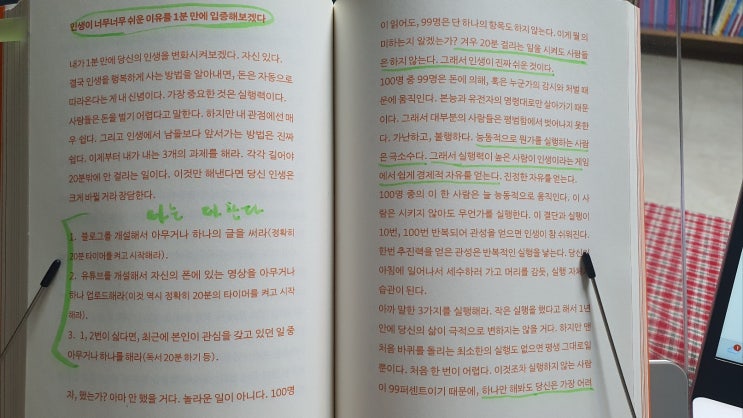 인생이 너무너무 쉬운 이유를 1분 만에 입증해보겠다
내가 1분 만에 당신의 인생을 변화시켜보겠다. 자신 있다.
결국 인생을 행복하게 사는 방법을 알아내면, 돈은 자동으로
따라온다는 게 내 신념이다. 가장 중요한 것은 실행력이다.
사람들은 돈을 벌기 어렵다고 말한다. 하지만 내 관점에선 매
우 쉽다. 그리고 인생에서 남들보다 앞서가는 방법은 진짜
쉽다. 이제부터 내가 내는 3개의 과제를 해라. 각각 길어야
20분밖에 안 걸리는 일이다. 이것만 해낸다면 당신 인생은
크게 바뀔 거라 장담한다.
나는 다 한다
1. 블로그를 개설해서 아무거나 하나의 글을 써라(정확히
20분 타이머를 켜고 시작해라).
2. 유튜브를 개설해서 자신의 폰에 있는 영상을 아무거나
하나 업로드해라(이것 역시 정확히 20분의 타이머를 켜고 시작
해라).
3. 1, 2번이 싫다면, 최근에 본인이 관심을 갖고 있던 일 중
아무거나 하나를 해라(독서 20분 하기 등).
자, 했는가? 아마 안 했을 거다. 놀라운 일이 아니다. 100명
이 읽어도, 99명은 단 하나의 항목도 하지 않는다. 이게 뭘 의
미하는지 알겠는가? 겨우 20분 걸리는 일을 시켜도 사람들
은 하지 않는다. 그래서 인생이 진짜 쉬운 것이다.
100명 중 99명은 돈에 의해, 혹은 누군가의 감시와 처벌 때
문에 움직인다. 본능과 유전자의 명령대로만 살아가기 때문
이다. 그래서 대부분의 사람들은 평범함에서 벗어나지 못한
다. 가난하고, 불행하다. 능동적으로 뭔가를 실행하는 사람
은 극소수다. 그래서 실행력이 높은 사람이 인생이라는 게임
에서 쉽게 경제적 자유를 얻는다. 진정한 자유를 얻는다.
100명 중의 이 한 사람은 늘 능동적으로 움직인다. 이 사
람은 시키지 않아도 무언가를 실행한다. 이 결단과 실행이
10번, 100번 반복되어 관성을 얻으면 인생이 참 쉬워진다.
한번 추진력을 얻은 관성은 반복적인 실행을 낳는다. 당신이
아침에 일어나서 세수하러 가고 머리를 감듯, 실행 자체가
습관이 된다.
아까 말한 3가지를 실행해라. 작은 실행을 했다고 해서 1년
안에 당신의 삶이 극적으로 변하지는 않을 거다. 하지만 맨
처음 바퀴를 돌리는 최소한의 실행도 없으면 평생 그대로일
뿐이다. 처음 한 번이 어렵다. 이것조차 실행하지 않는 사람
이 99퍼센트이기 때문에, 하나만 해봐도 당신은 가장 어려